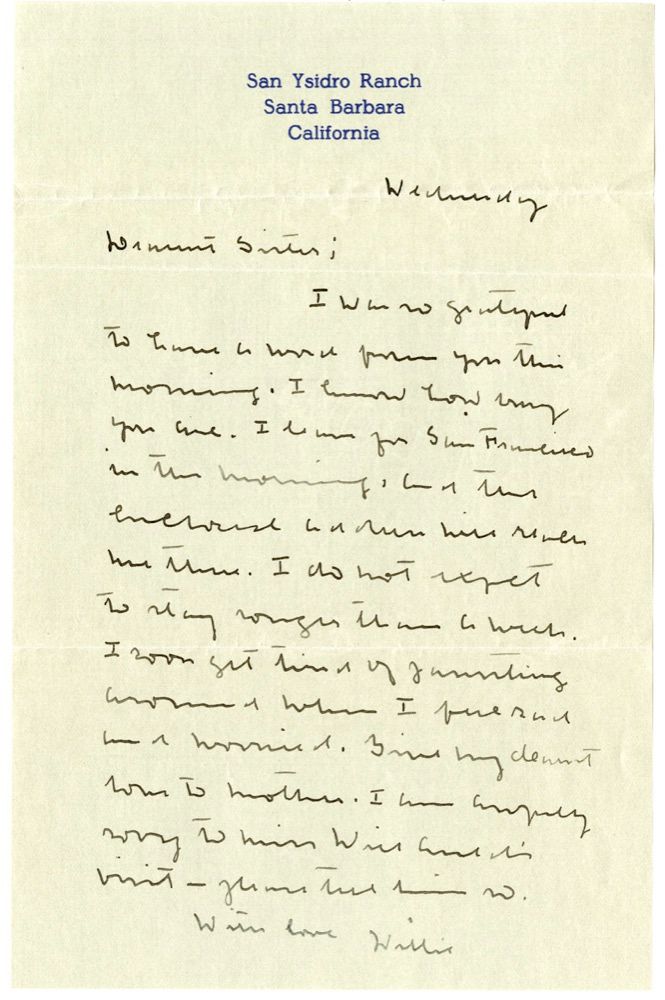 San Ysidro Ranch
Santa Barbara
California
Wednesday
Dearest Sister;
I was so grateful
to have a word from you this
morning. I know how busy
you are. I leave for San Francisco
in the morning, and the
enclosed address will reach
me there. I do not expect
to stay longer than a week.
I soon get tired of jaunting
around when I feel sad
and worried. Give my dearest
love to mother. I am awfully
sorry to miss
visit – please tell him so.
With love Willie